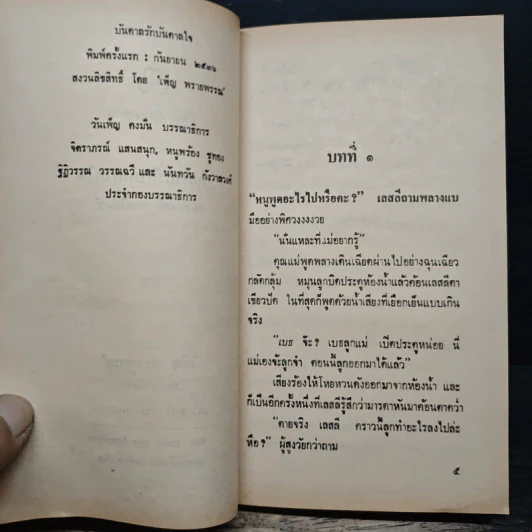 บันดาลรักบันดาลใจ
พิมพ์ครั้งแรก : กันยายน ๒๕๓๖
สงวนลิขสิทธิ์ โดย 'เพ็ญ พรายพรรณ'
วันเพ็ญ คงมั่น บรรณาธิการ
จิตราภรณ์ แสนสนุก, หนูพร้อง ชูทอง
ฐิฏิวรรณ วรรณฉวี และ นันทวัน กังวาลวงศ์
ประจำกองบรรณาธิการ
บทที่ ๑
"หนูพูดอะไรไปหรือคะ?" เลสลีถามพลางแบ
มืออย่างพิศวงงงงวย
"นั่นแหละที่แม่อยากรู้"
คุณแม่พูดพลางเดินเฉียดผ่านไปอย่างฉุนเฉียว
กลัดกลุ้ม หมุนลูกบิดประตูห้องน้ำแล้วค้อนเลสลีตา
เขียวปัด ในที่สุดก็พูดด้วยน้ำเสียงที่เยือกเย็นแบบเกิน
จริง
"เบธ จ๊ะ? เบธลูกแม่ เปิดประตูหน่อย นี่
แม่เองจ้ะลูกจ๋า ตอนนี้ลูกออกมาได้แล้ว"
เสียงร้องไห้โหยหวนดังออกมาจากห้องน้ำ และ
ก็เป็นอีกครั้งหนึ่งที่เลสลีรู้สึกว่ามารดาหันมาค้อนตาคว่ำ
"ตายจริง เลสลี คราวนี้ลูกทำอะไรลงไปล่ะ
หือ?" ผู้สูงวัยกว่าถาม
๕